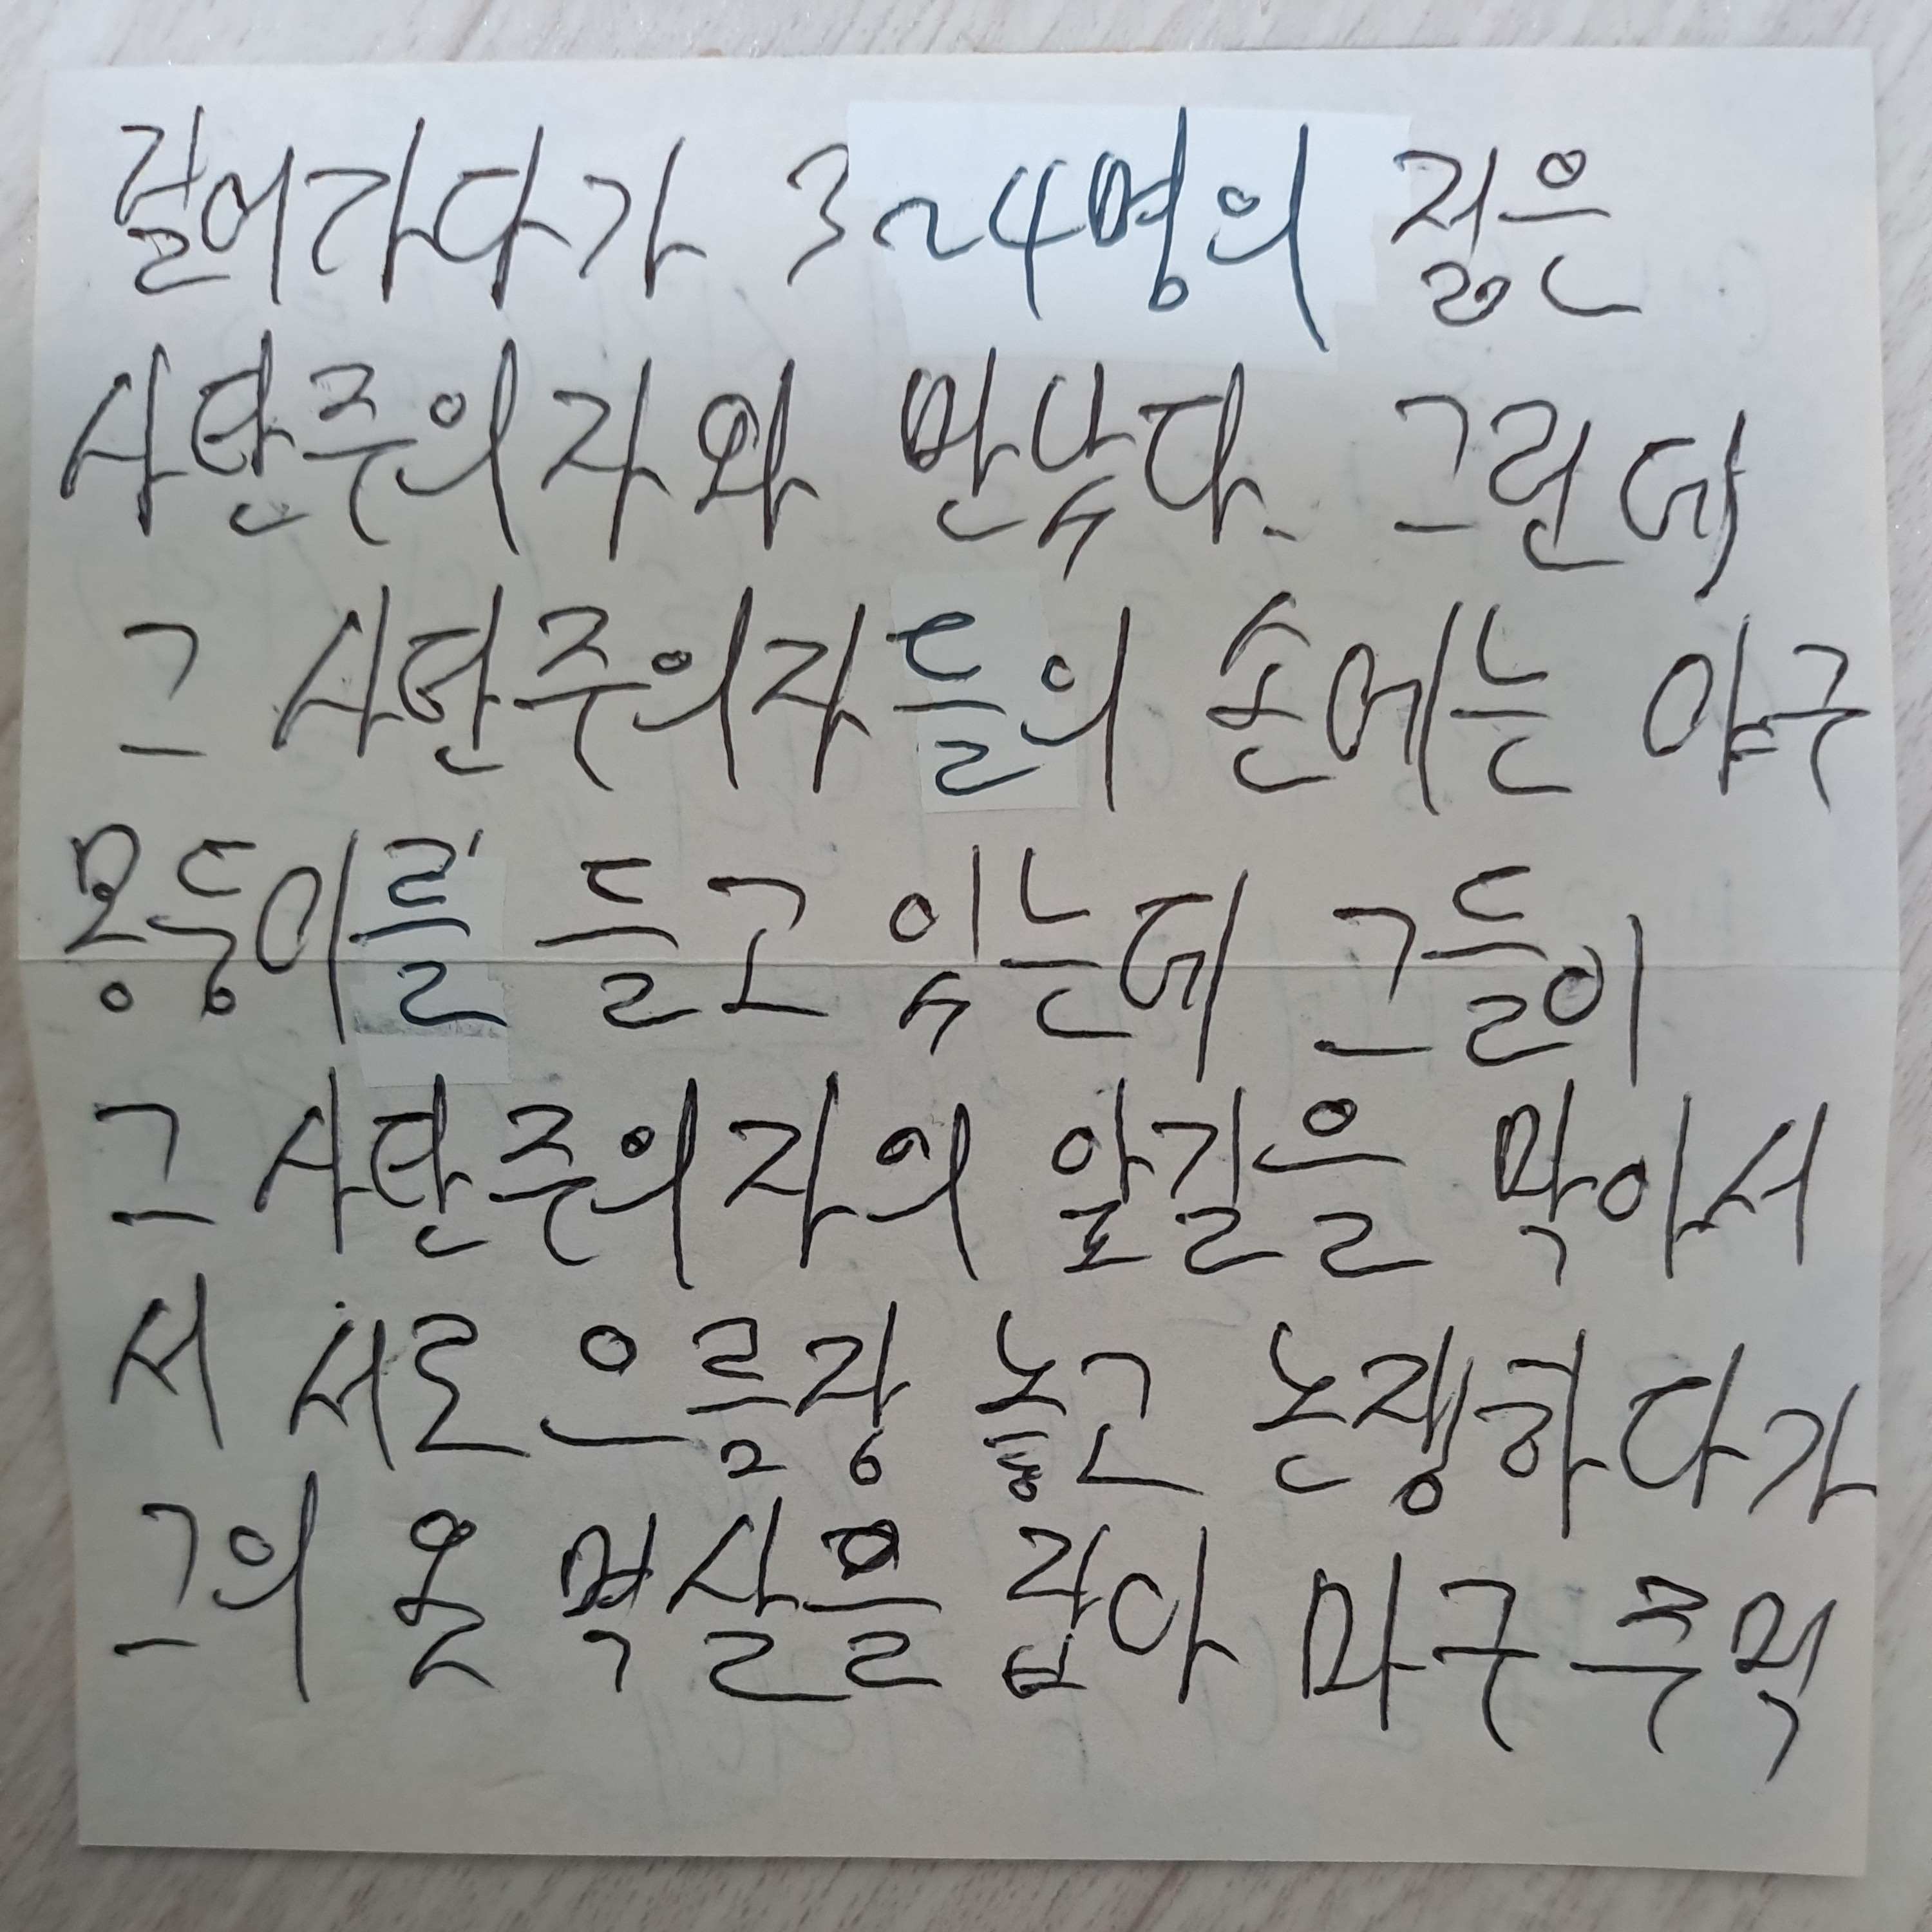 걸어가다가 3~4명의 젊은
사탄주의자와 만났다. 그런데
그 사탄주의자들의 손에는 야구
몽둥이를 들고 있는데 그들이
그 사탄주의자의 앞길을 막아서
서 서로 으름장 놓고 논쟁하다가
그의 옷 멱살을 잡아 마구 주먹